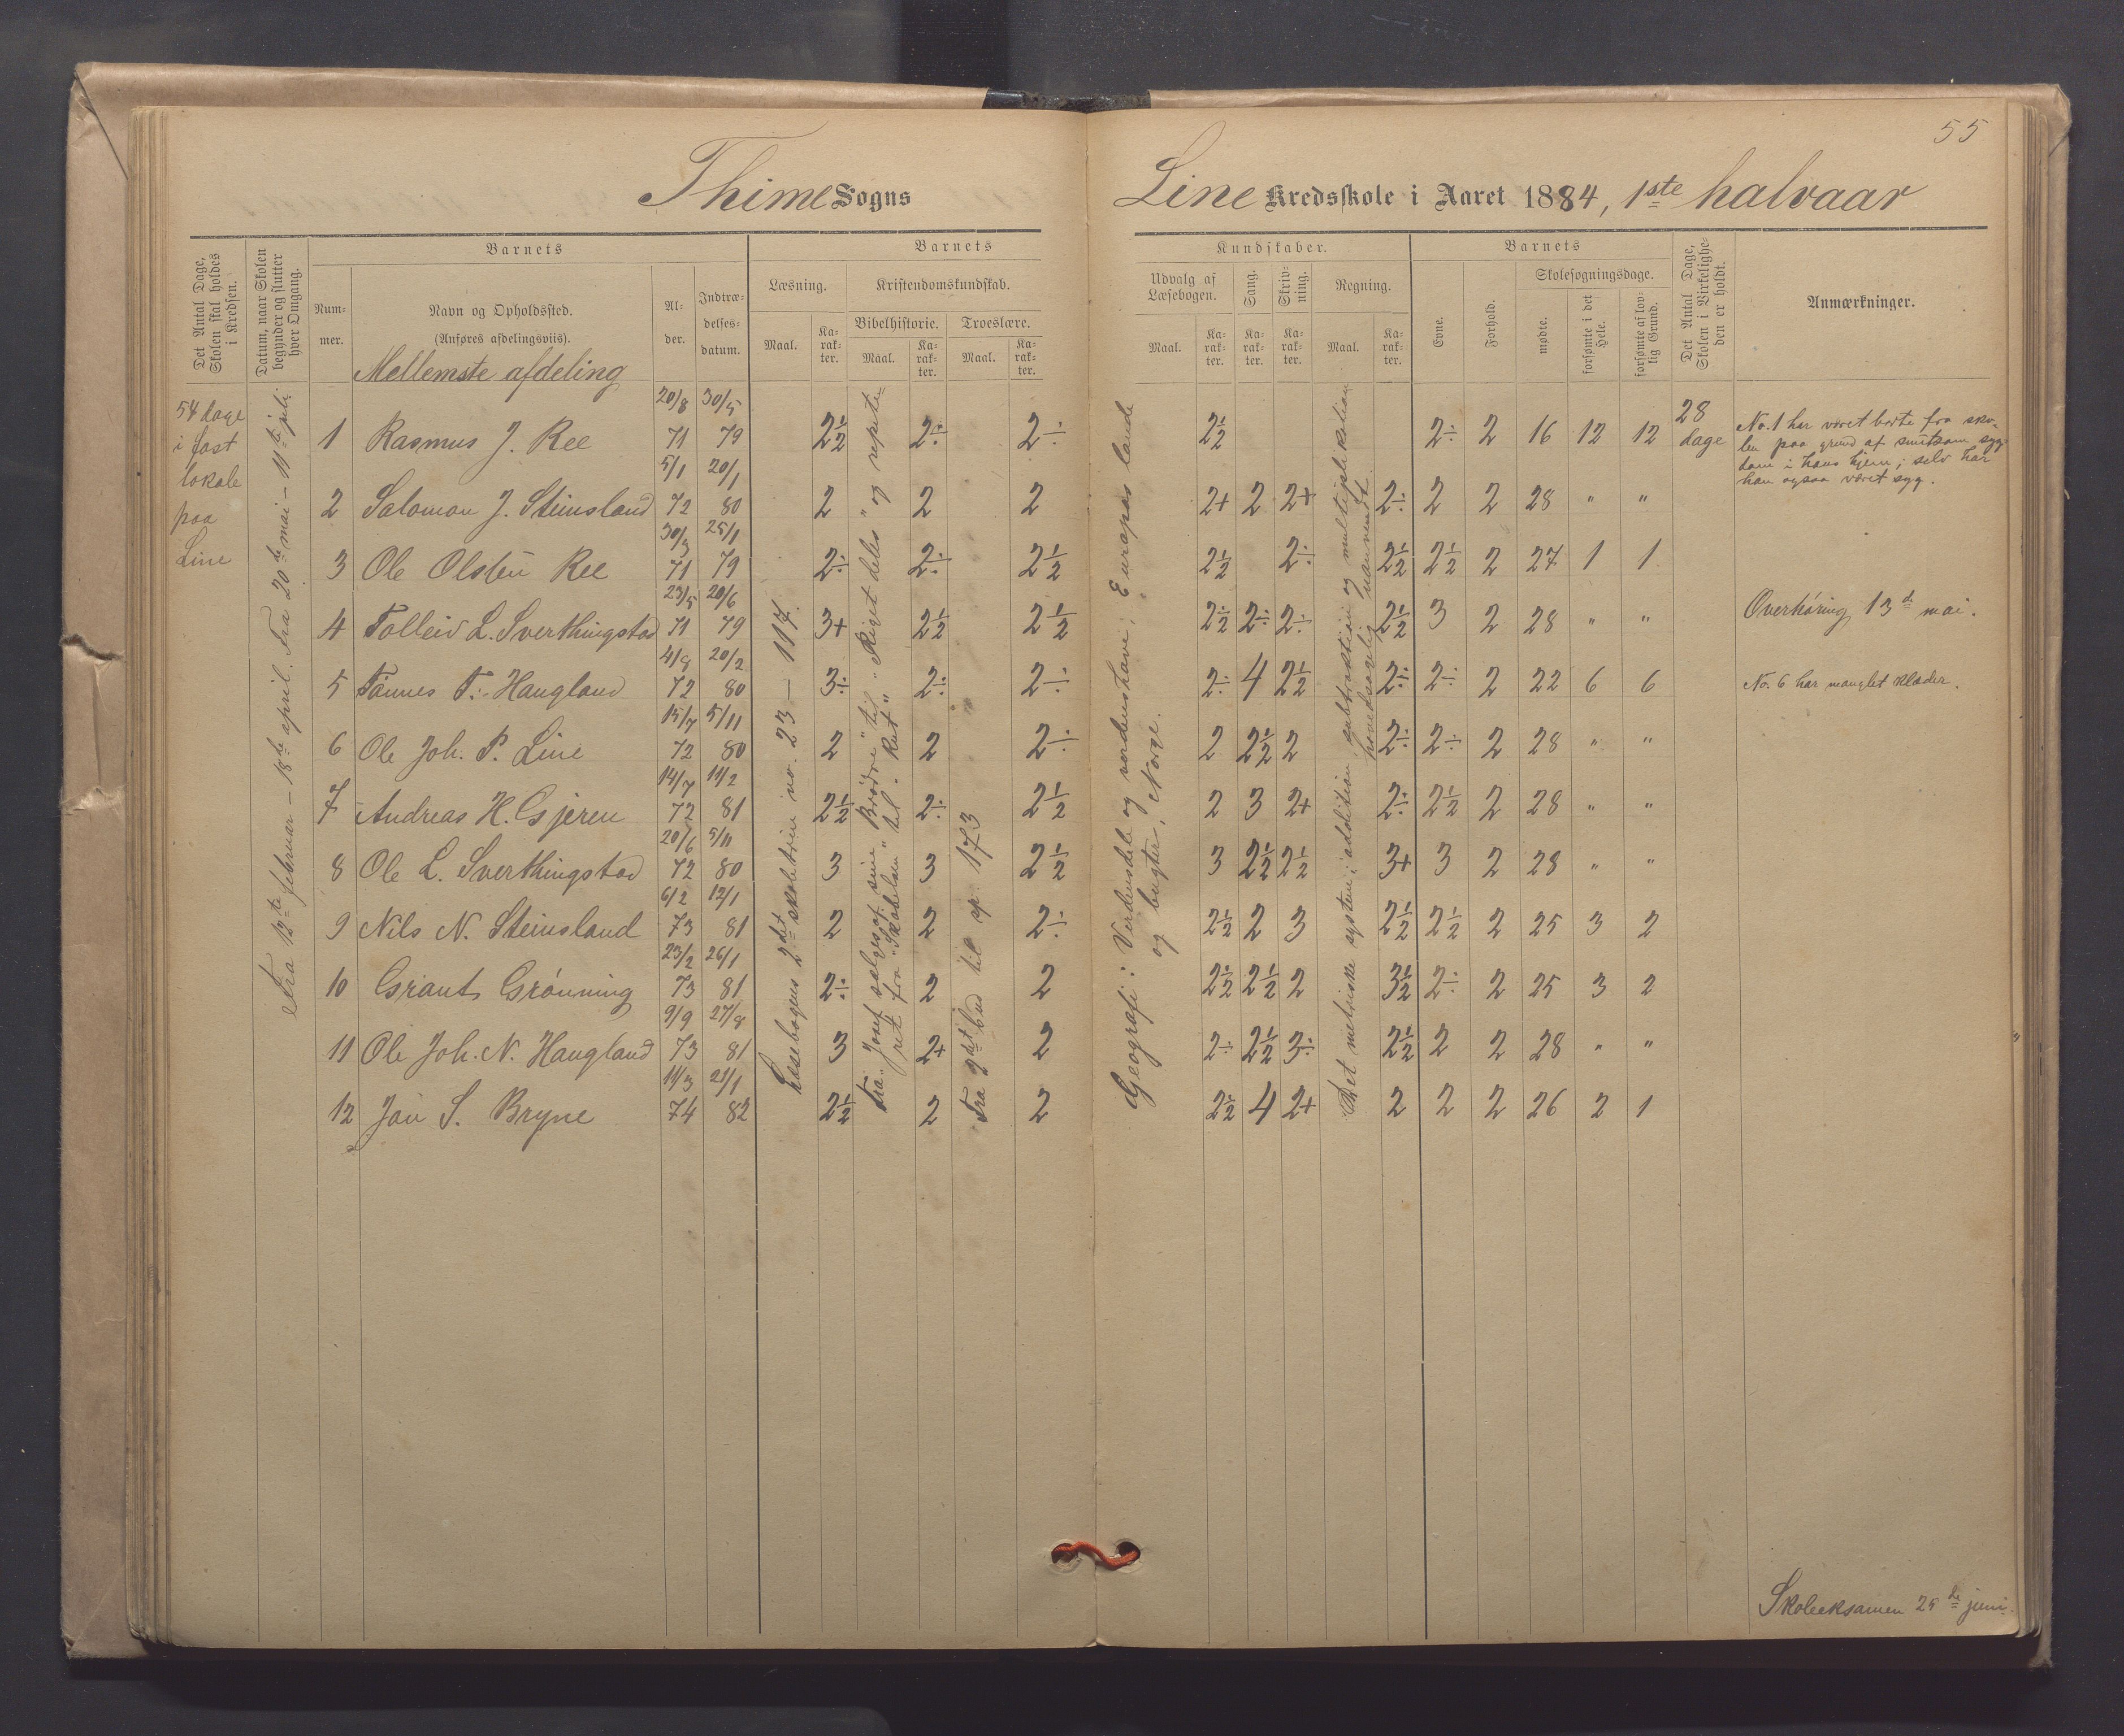 55
Thime Sogns Line Kredsskole i Aaret 1884, 1ste halvaar
Det Antal Dage, Skolen skal holdes i Kredsen.
Datum, naar Skolen begynder og slutter hver Omgang.
Barnets
Nummer.
Navn og Opholdssted.
(Anføres afdelingsviis).
Alder.
Indtrædelses-datum.
Barnets Kundskaber.
Læsning.
Maal.
Karakter.
Kristendomskundskab.
Bibelhistorie.
Maal.
Karakter.
Troeslære.
Maal.
Karakter.
Udvalg af Læsebogen.
Maal.
Karakter.
Sang.
Karakter.
Skrivning.
Karakter.
Regning.
Maal.
Karakter.
Barnets
Evne.
Forhold.
Skolesøgningsdage.
mødte.
forsømte i det Hele.
forsømte af lovlig Grund.
Det Antal Dage, Skolen i Virkeligheden er holdt.
Anmærkninger.
Mellemste afdeling
54 dage
i fast
lokale
paa
Line
Fra 13de februar – 18de april. Fra 20de mai – 11te juli.
Læsebogens 2det skoletrin no. 23 – 117.
Fra "Josef sælges af sine Brødre" til "Riget deles" og repeteret fra "Skabelsen" til "Rut"
Fra 2det bud til sp. 173
Geografi: Verdensdele og verdenshave; Europas lande
og bugter. Norge.
Det metriske system; addition, subtraktion og multiplikation
hovedsagelig uanvendt.
1 Rasmus J. Ree 20/8 71 30/5 79 2½ 2÷ 2÷ 2½ 2÷ 2 16 12 12 28 dage
2 Salomon J. Steinsland 5/1 72 20/1 80 2 2 2 2+ 2 2+ 2÷ 2 2 28 " "
3 Ole Olsen Ree 30/3 71 25/1 79 2÷ 2÷ 2½ 2½ 2÷ 2½ 2½ 2 27 1 1
4 Tolleiv L. Sverthingstad 23/5 71 20/6 79 3+ 2½ 2½ 2½ 2÷ 2÷ 2½ 3 2 28 " "
5 Tønnes T. Haugland 4/8 72 20/2 80 3÷ 2÷ 2÷ 2÷ 4 2½ 2÷ 2÷ 2 22 6 6
6 Ole Joh. P. Line 15/7 72 5/11 80 2 2 2÷ 2 2½ 2 2÷ 2÷ 2 28 " "
7 Andreas H. Gjeren 14/7 72 11/2 81 2½ 2÷ 2½ 2 3 2+ 2÷ 2½ 2 28 " "
8 Ole L. Sverthingstad 20/6 72 5/11 80 3 3 2½ 3 2½ 2½ 3+ 3 2 28 " "
9 Nils N. Steinsland 6/2 73 12/1 81 2 2 2÷ 2½ 2 3 2½ 2½ 2 25 3 2
10 Graut Grønning 23/2 73 26/1 81 2÷ 2 2 2½ 2½ 2 3½ 2÷ 2 25 3 2
11 Ole Joh. N. Haugland 9/9 73 27/8 81 3 2+ 2 2÷ 2½ 3÷ 2½ 2 2 28 " "
12 Jon S. Bryne 11/3 74 21/1 82 2½ 2 2 2½ 4 2+ 2 2 2 26 2 1
No. 1 har været borte fra sko-
len paa grund af smitsom syg-
dom i hans hjem; selv har
han ogsaa været syg.
Overhøring 13de mai.
No. 6 har manglet klæder.
Skoleeksamen 25de juni.